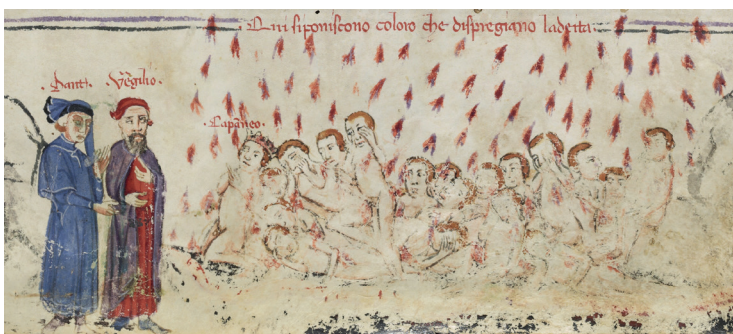 Qui si poniscono coloro che dispregiano la deita.
.Dant. .V̄gilio.
.Capāneo.